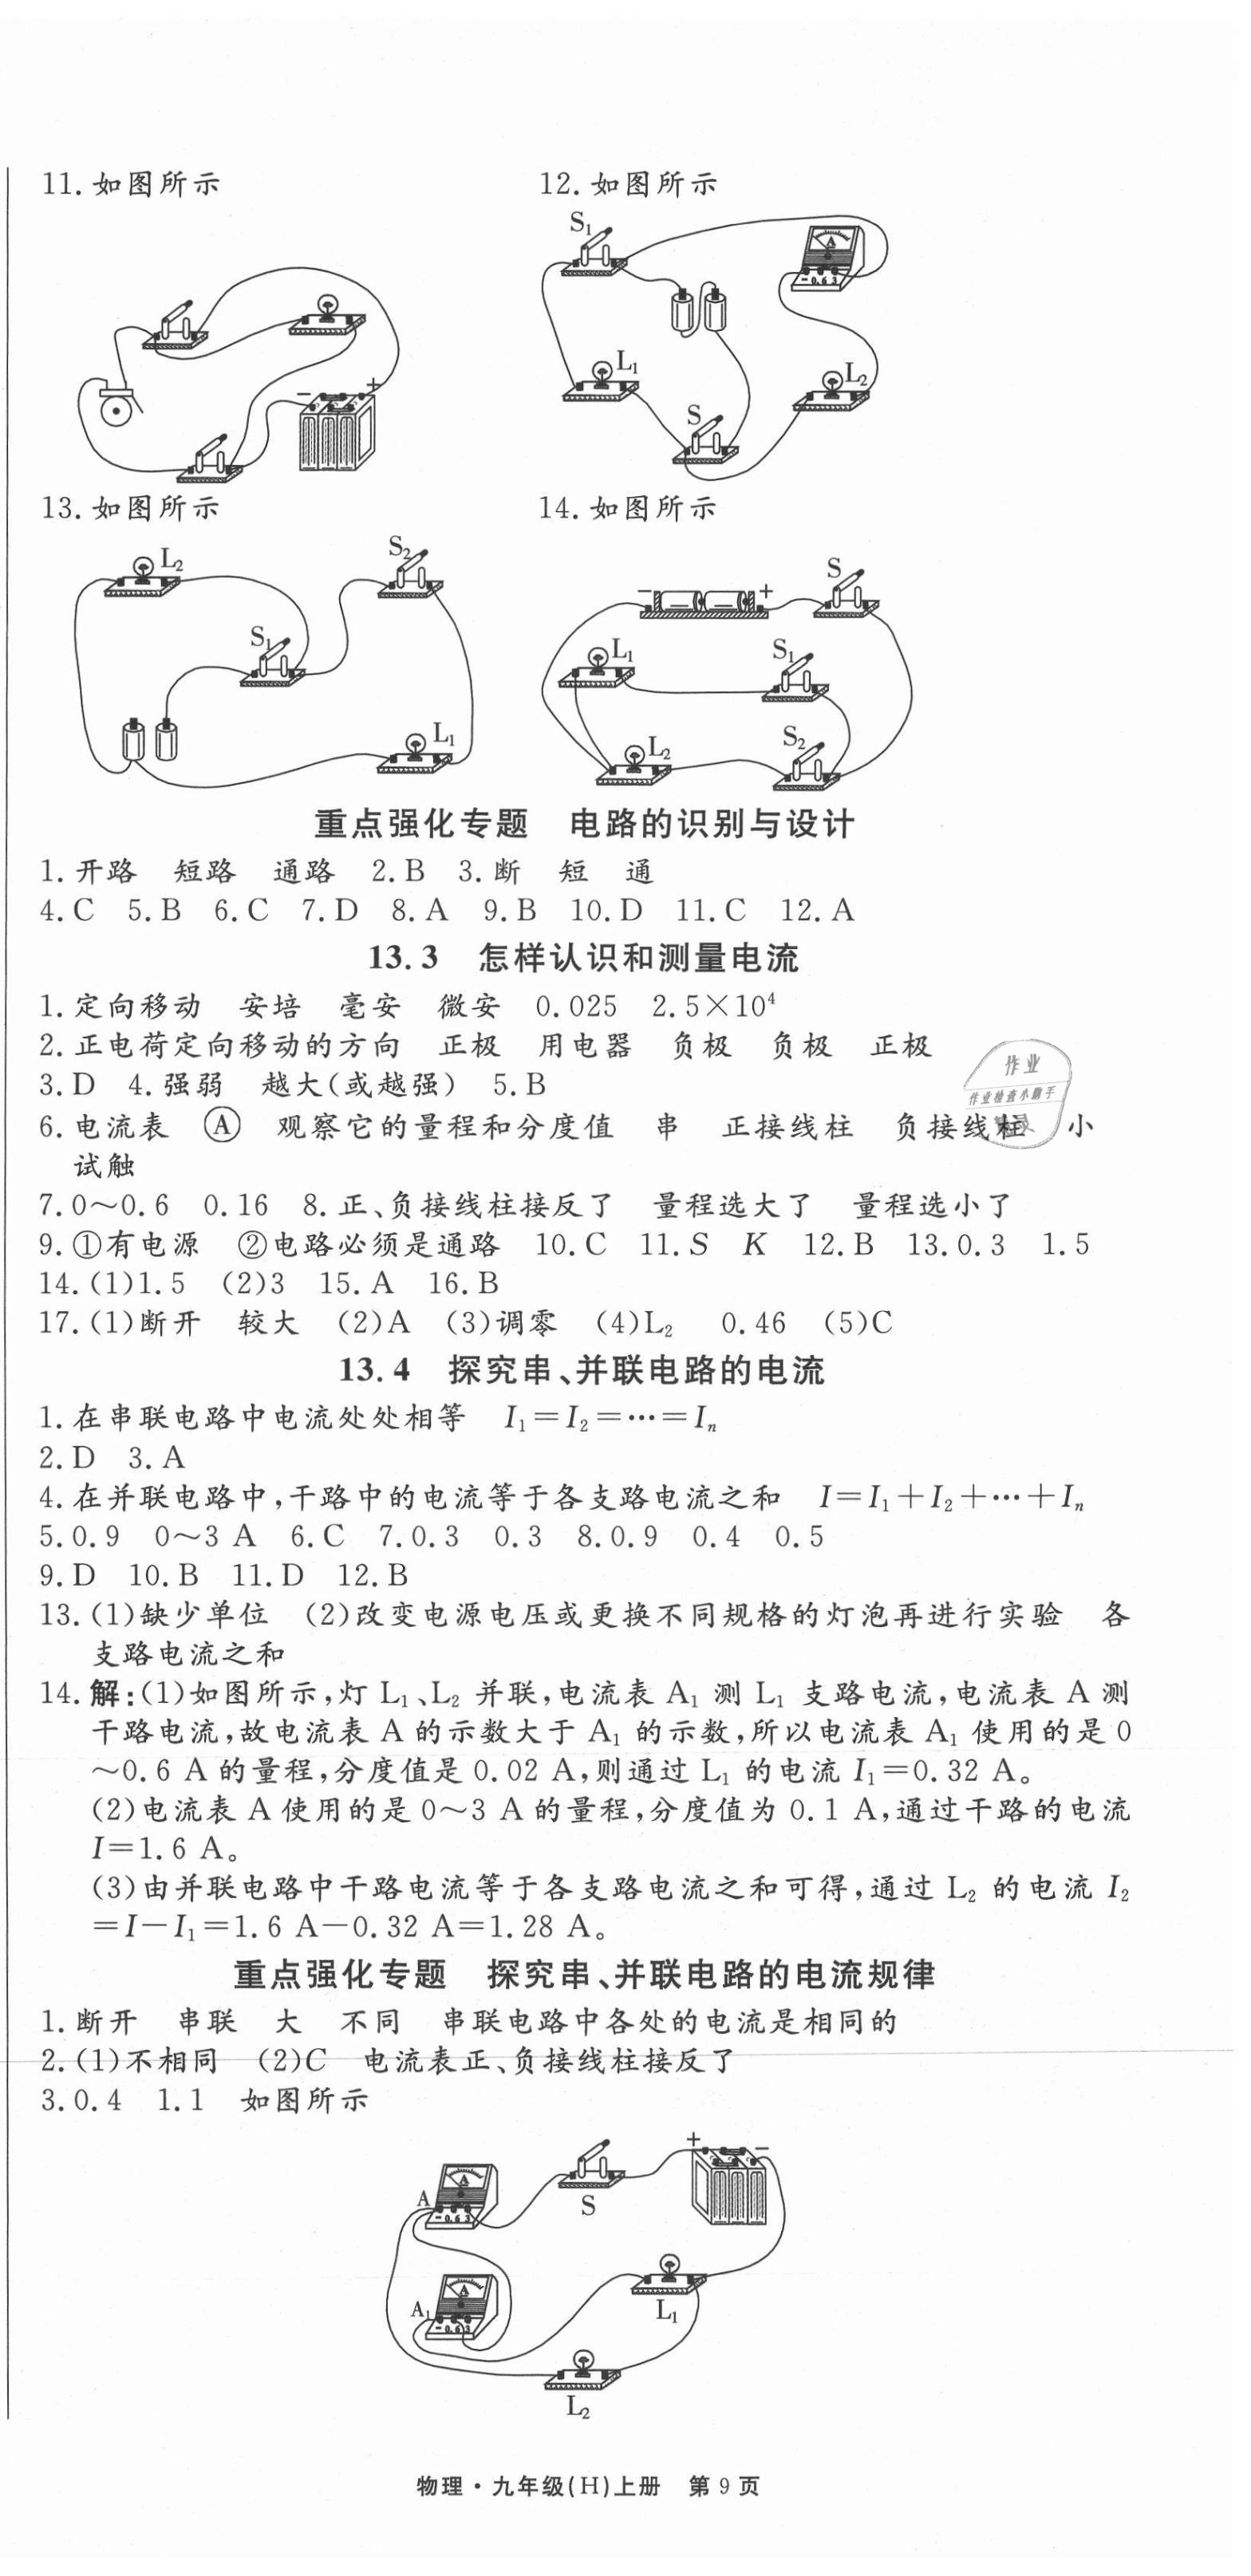 11.如图所示 12.如图所示
S₁
A
－ 0.6 3
L₁
L₂
S
－ +
13.如图所示 14.如图所示
L₂
S₂
S₁
L₁
－ +
S
L₁
S₁
L₂
S₂
重点强化专题 电路的识别与设计
1.开路 短路 通路 2.B 3.断 短 通
4.C 5.B 6.C 7.D 8.A 9.B 10.D 11.C 12.A
13.3 怎样认识和测量电流
1.定向移动 安培 毫安 微安 0.025 2.5×10⁴
2.正电荷定向移动的方向 正极 用电器 负极 负极 正极
3.D 4.强弱 越大(或越强) 5.B
6.电流表 Ⓐ 观察它的量程和分度值 串 正接线柱 负接线柱 小
试触
作业
作业检查小助手
7.0～0.6 0.16 8.正、负接线柱接反了 量程选大了 量程选小了
9.①有电源 ②电路必须是通路 10.C 11.S K 12.B 13.0.3 1.5
14.(1)1.5 (2)3 15.A 16.B
17.(1)断开 较大 (2)A (3)调零 (4)L₂ 0.46 (5)C
13.4 探究串、并联电路的电流
1.在串联电路中电流处处相等 I₁＝I₂＝…＝Iₙ
2.D 3.A
4.在并联电路中,干路中的电流等于各支路电流之和 I＝I₁＋I₂＋…＋Iₙ
5.0.9 0～3 A 6.C 7.0.3 0.3 8.0.9 0.4 0.5
9.D 10.B 11.D 12.B
13.(1)缺少单位 (2)改变电源电压或更换不同规格的灯泡再进行实验 各
支路电流之和
14.解:(1)如图所示,灯 L₁、L₂ 并联,电流表 A₁ 测 L₁ 支路电流,电流表 A 测
干路电流,故电流表 A 的示数大于 A₁ 的示数,所以电流表 A₁ 使用的是 0
～0.6 A 的量程,分度值是 0.02 A,则通过 L₁ 的电流 I₁＝0.32 A。
(2)电流表 A 使用的是 0～3 A 的量程,分度值为 0.1 A,通过干路的电流
I＝1.6 A。
(3)由并联电路中干路电流等于各支路电流之和可得,通过 L₂ 的电流 I₂
＝I－I₁＝1.6 A－0.32 A＝1.28 A。
重点强化专题 探究串、并联电路的电流规律
1.断开 串联 大 不同 串联电路中各处的电流是相同的
2.(1)不相同 (2)C 电流表正、负接线柱接反了
3.0.4 1.1 如图所示
+ －
A
A
－ 0.6 3
S
A
A₁
－ 0.6 3
L₁
L₂
物理·九年级(H)上册 第 9 页